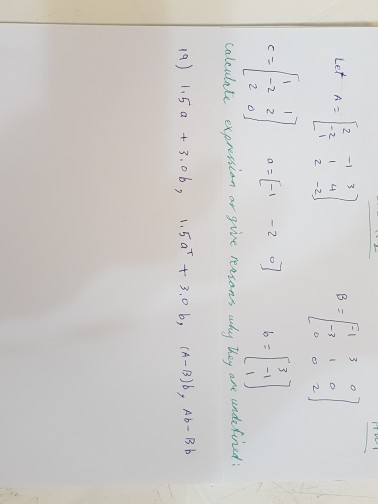 Let A = [2 -1 3
-2 1 4
1 2 -2]
B = [-1 3 0
-3 1 0
0 0 2]
C = [1 1
-2 2
2 0]
a = [-1 -2 0]
b = [3
-1
1]
Calculate expression or give reasons why they are undefined:
19) 1.5a + 3.0b, 1.5aᵀ + 3.0b, (A-B)b, Ab - Bb